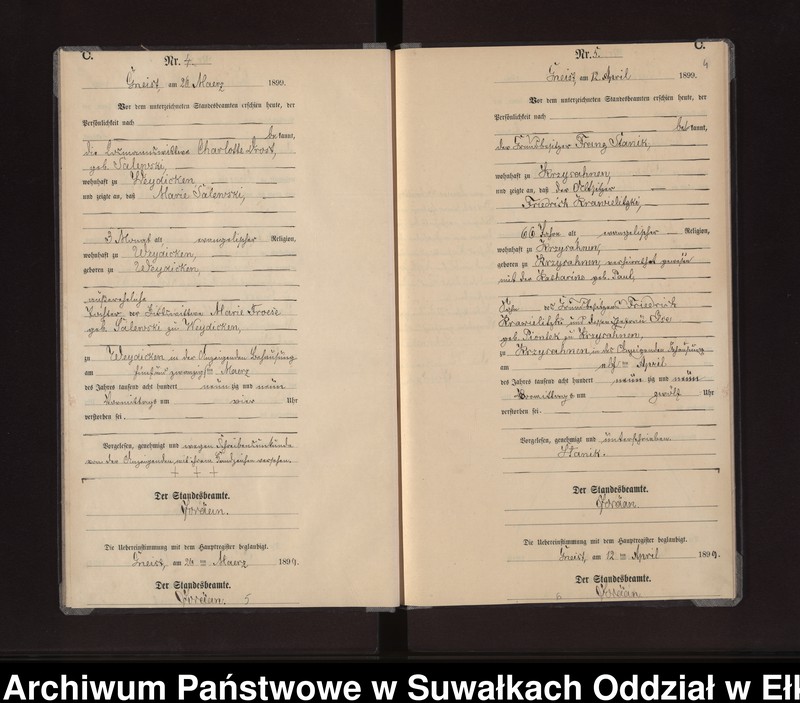 C.
Nr. 4.
Gneist, am 24 Maerz 1899.
Vor dem unterzeichneten Standesbeamten erschien heute, der
Persönlichkeit nach
bekannt,
die Charlotte Drost,
geb. Salewski,
wohnhaft zu Weydicken
und zeigte an, daß Marie Salewski,
3 Monat alt evangelischer Religion,
wohnhaft zu Weydicken,
geboren zu Weydicken,
außereheliche
Tochter der Marie
geb. Salewski zu Weydicken,
zu Weydicken in der Anzeigenden Behausung
am fünfundzwanzigsten Maerz
des Jahres tausend acht hundert neunzig und neun
Vormittags um vier Uhr
verstorben sei.
Vorgelesen, genehmigt und wegen Schreibensunkunde
von der Anzeigenden mit ihrem Handzeichen versehen.
+ + +
Der Standesbeamte.
Jordan.
Die Uebereinstimmung mit dem Hauptregister beglaubigt.
Gneist, am 24 ten Maerz 1899.
Der Standesbeamte.
Jordan.
5
C.
4
Nr. 5.
Gneist, am 12 April 1899.
Vor dem unterzeichneten Standesbeamten erschien heute, der
Persönlichkeit nach
bekannt,
der Grundbesitzer Franz Stanik,
wohnhaft zu Krzysahnen,
und zeigte an, daß der Altsitzer
Friedrich Krawielitzki,
66 Jahre alt evangelischer Religion,
wohnhaft zu Krzysahnen,
geboren zu Krzysahnen, verheirathet gewesen
mit der Katharine geb. Paul,
Sohn des Grundbesitzers Friedrich
Krawielitzki und dessen Ehefrau
geb. Piontek zu Krzysahnen,
zu Krzysahnen in des Anzeigenden Behausung
am elften April
des Jahres tausend acht hundert neunzig und neun
Vormittags um zwölf Uhr
verstorben sei.
Vorgelesen, genehmigt und unterschrieben
Stanik.
Der Standesbeamte.
Jordan.
Die Uebereinstimmung mit dem Hauptregister beglaubigt.
Gneist, am 12 ten April 1899.
Der Standesbeamte.
6 Jordan.
Archiwum Państwowe w Suwałkach Oddział w Ełk